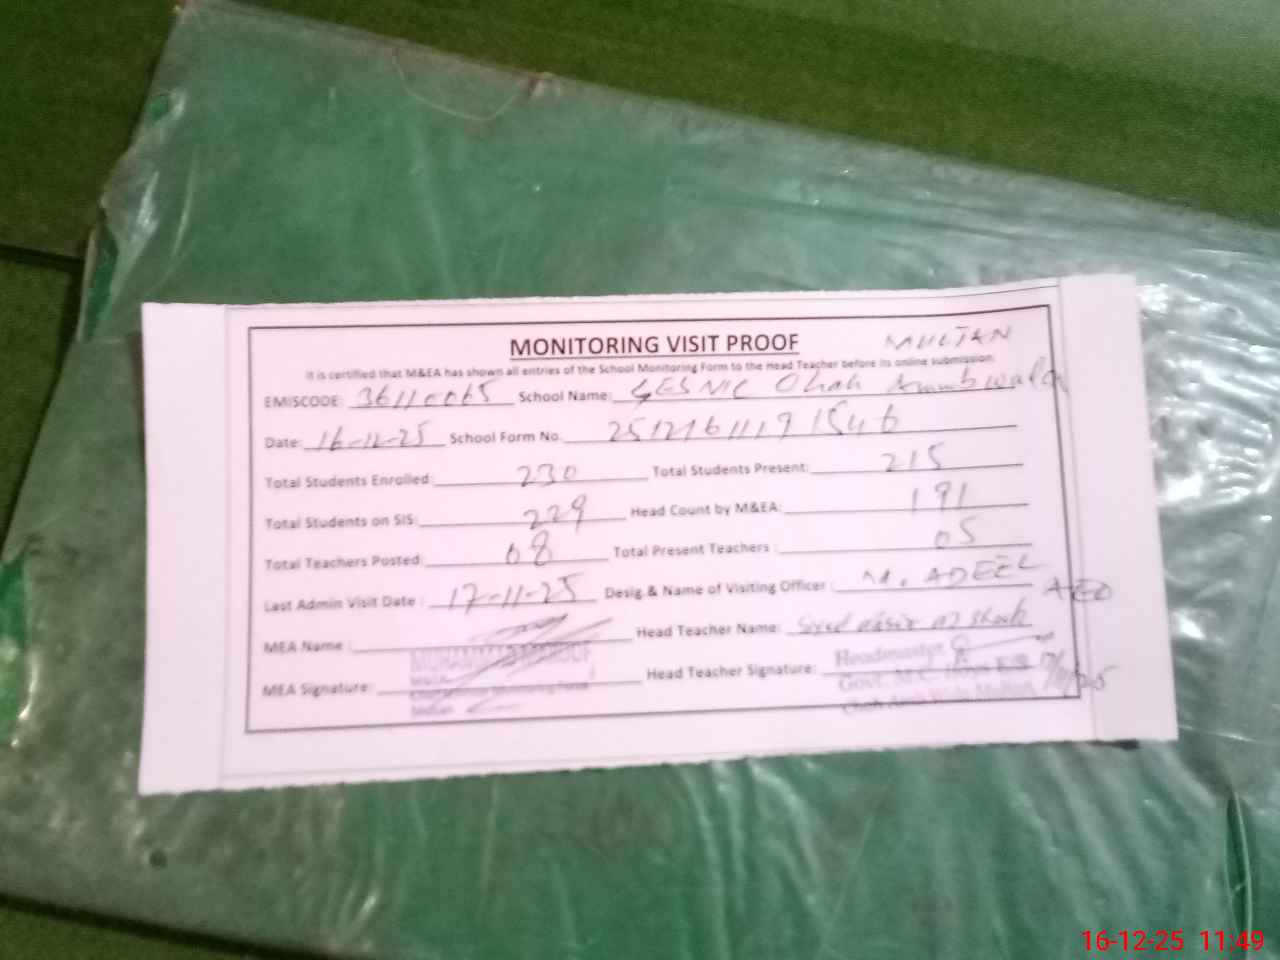 MONITORING VISIT PROOF MULTAN
It is certified that M&EA has shown all entries of the School Monitoring Form to the Head Teacher before its online submission.
EMISCODE: 36110065 School Name: Chah Ambwala
Date: 16-12-25 School Form No. 251216111191546
Total Students Enrolled: 230 Total Students Present: 215
Total Students on SIS: 229 Head Count by M&EA: 191
Total Teachers Posted: 08 Total Present Teachers : 05
Last Admin Visit Date : 17-11-25 Desig.& Name of Visiting Officer : M. ADEEL AEO
MEA Name : Head Teacher Name: Syed
MUHAMMAD
MEA Signature: Head Teacher Signature: Headmaster
Monitoring Force Govt. M.C. Boys
Multan
16-12-25 11:49